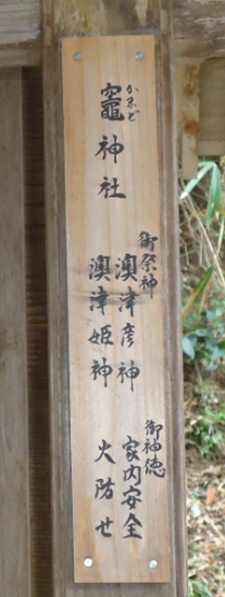 竈神社
かまど
御祭神
澳津彦神
澳津姫神
御神徳
家内安全
火防せ